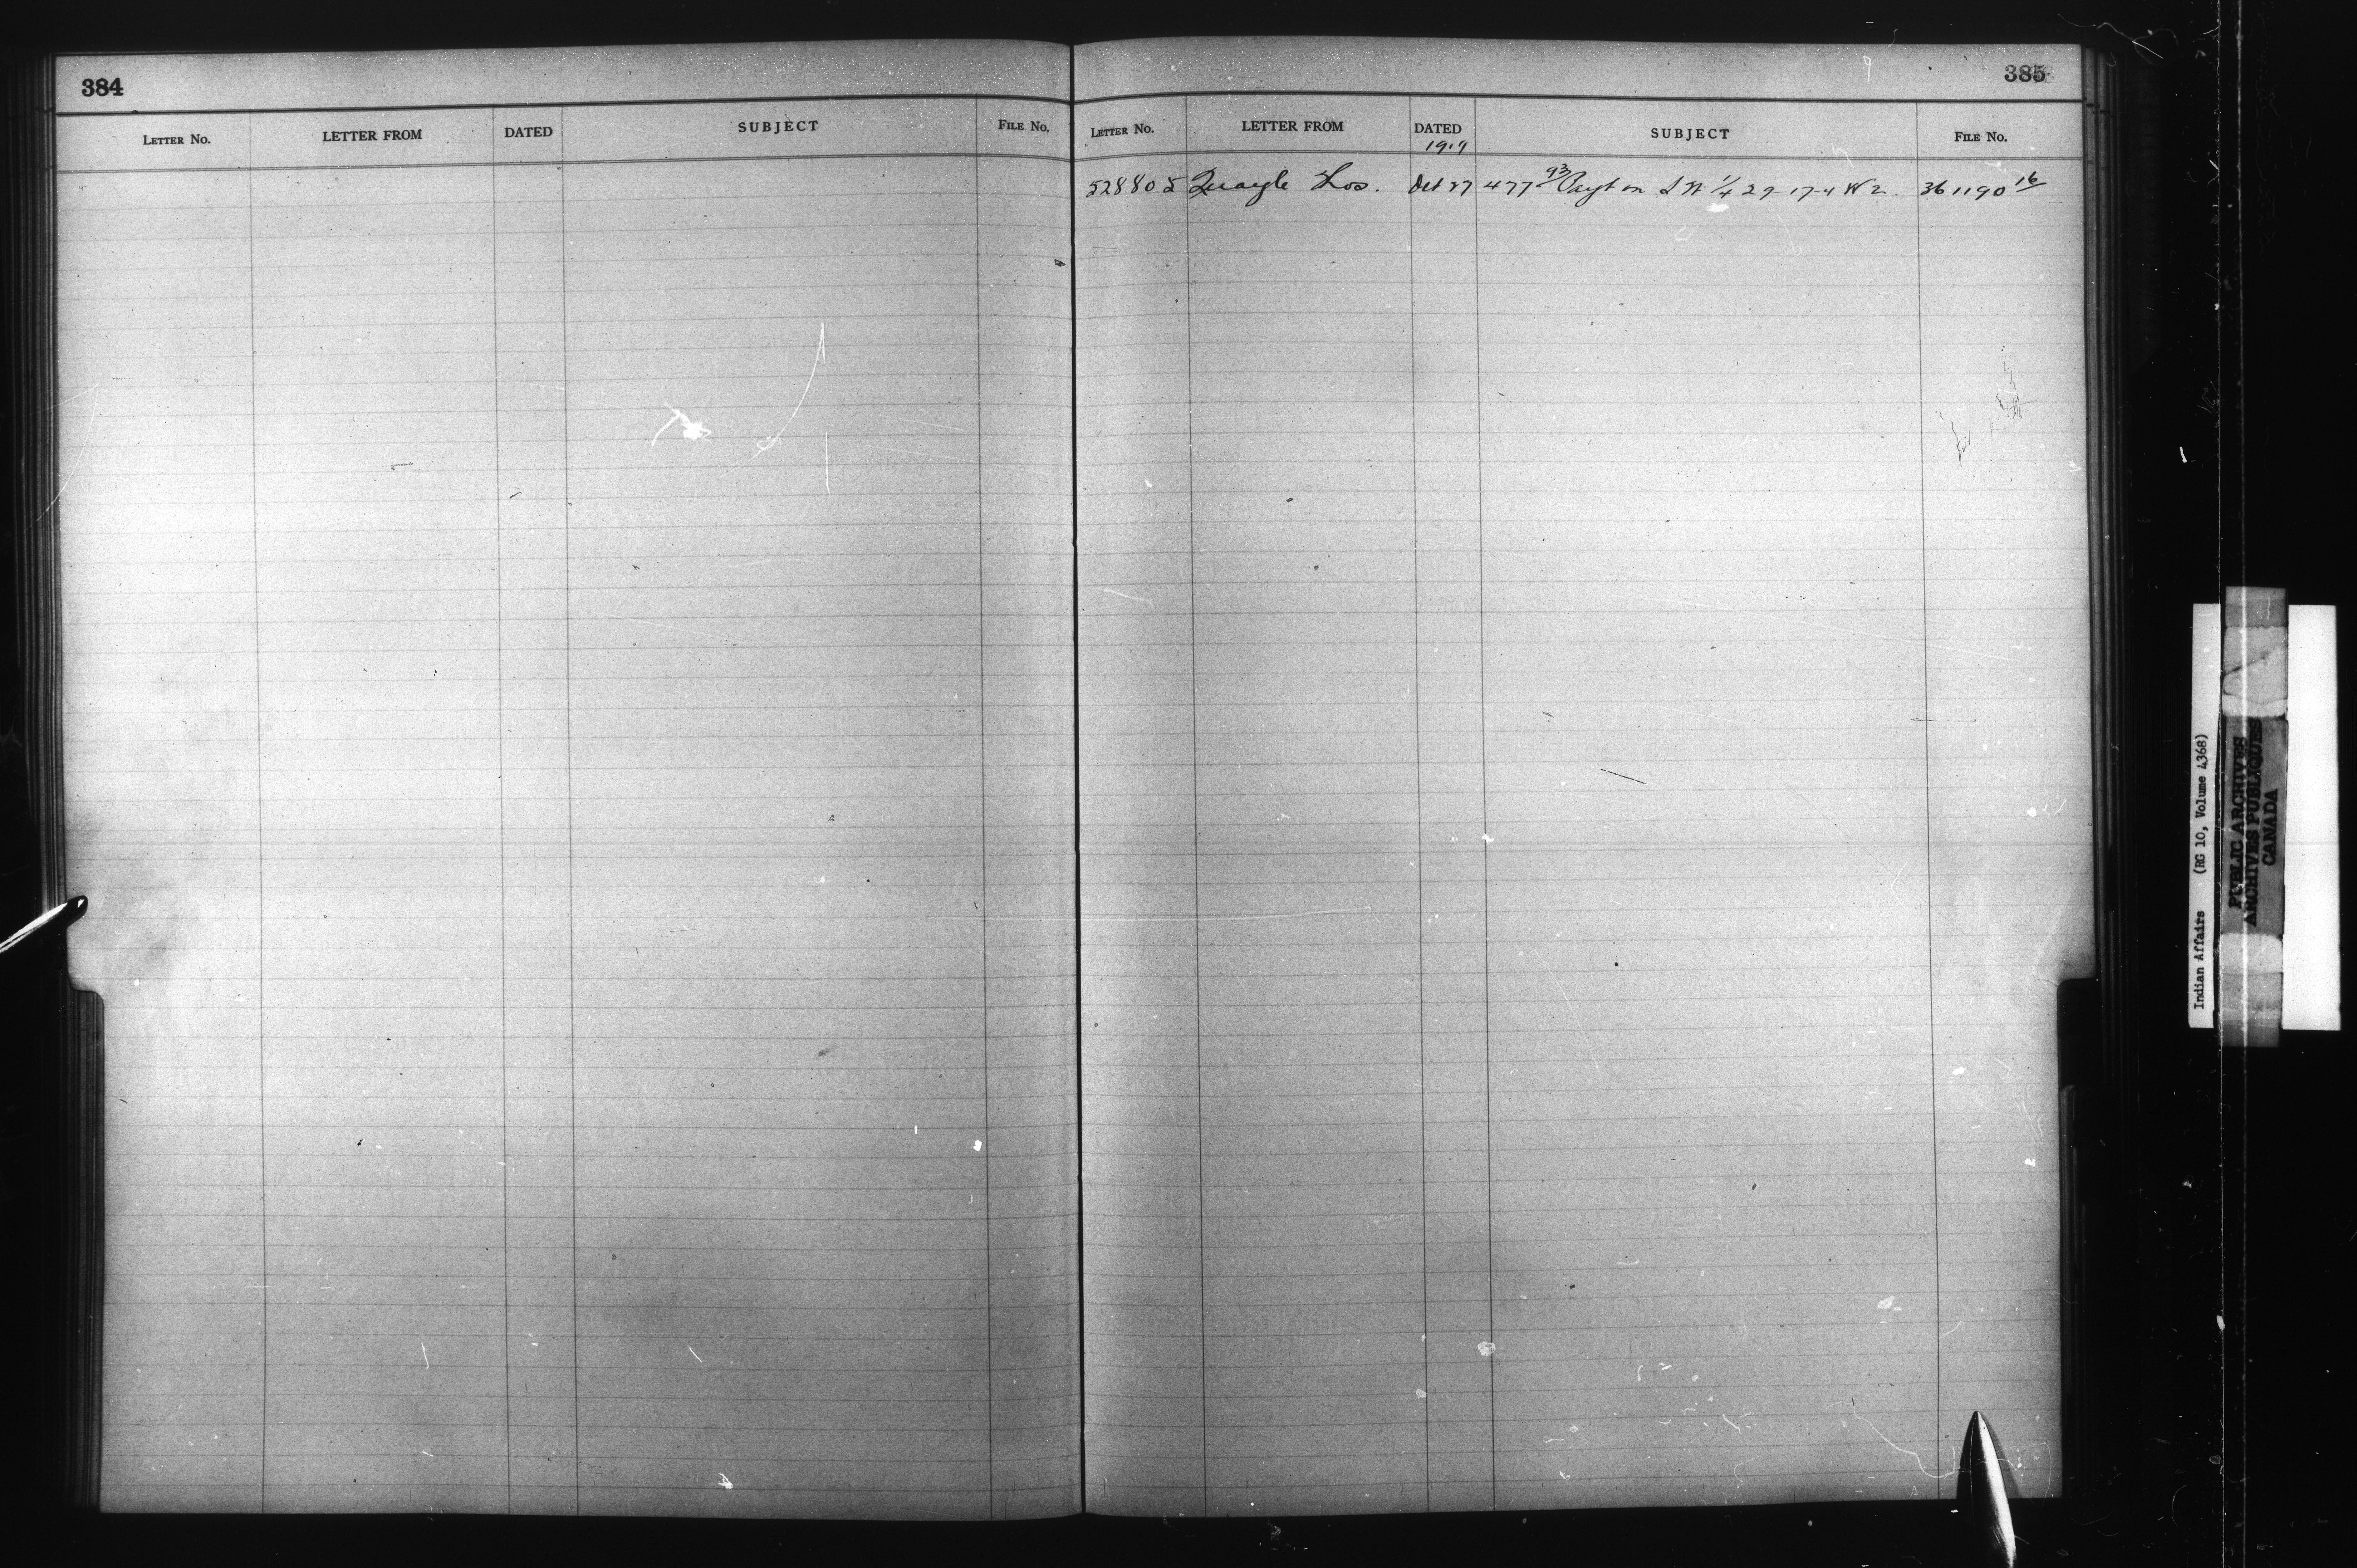 384
LETTER No. LETTER FROM DATED SUBJECT FILE No.
385
LETTER No. LETTER FROM DATED SUBJECT FILE No.
1919
528805 Quayle Thos. Oct 27 477 93 Payt on S W 1/4 29-17-4 W 2. 361190 16
Indian Affairs (RG 10, Volume 4368)
PUBLIC ARCHIVES
ARCHIVES PUBLIQUES
CANADA